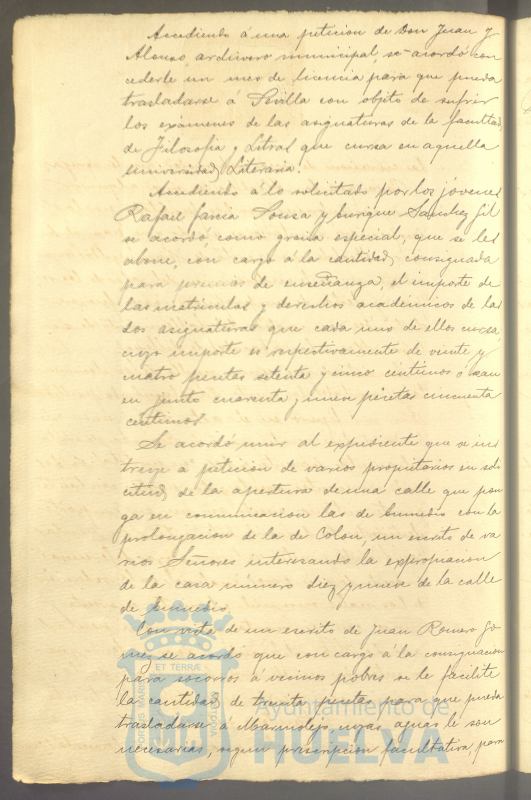 Accediendo á una peticion de Don Juan y
Alonso, archivero municipal, se acordó con
cederle un mes de licencia para que pueda
trasladarse á Sevilla con objeto de sufrir
los exámenes de las asignaturas de la facultad
de Filosofia y Letras que cursa en aquella
Universidad Literaria.
Accediendo á lo solicitado por los jóvenes
Rafael Garcia Sousa y Enrique Sanchez Gil
se acordó, como gracia especial, que se les
abone, con cargo á la cantidad consignada
para premios de enseñanza, el importe de
las matriculas y derechos académicos de las
dos asignaturas que cada uno de ellos cursa,
cuyo importe es respectivamente de veinte y
cuatro pesetas setenta y cinco centimos ó sean
en junto cuarenta y nueve pesetas cincuenta
centimos.
Se acordó unir al expediente que se ins
truye á peticion de varios propietarios en soli
citud de la apertura de una calle que pon
ga en comunicacion las de Enmedio con la
prolongacion de la de Colon, un escrito de va
rios Señores interesando la expropiacion
de la casa número diez y nueve de la calle
de Enmedio.
Con vista de un escrito de Juan Romero Gó
mez se acordó que con cargo á la consignacion
para socorros á vecinos pobres se le facilite
la cantidad de treinta pesetas para que pueda
trasladarse á Marmolejo, cuyas aguas le son
necesarias, segun prescripcion facultativa, para
PORTUS MARIS
ET TERRÆ
CUSTODIA
Ayuntamiento de
HUELVA